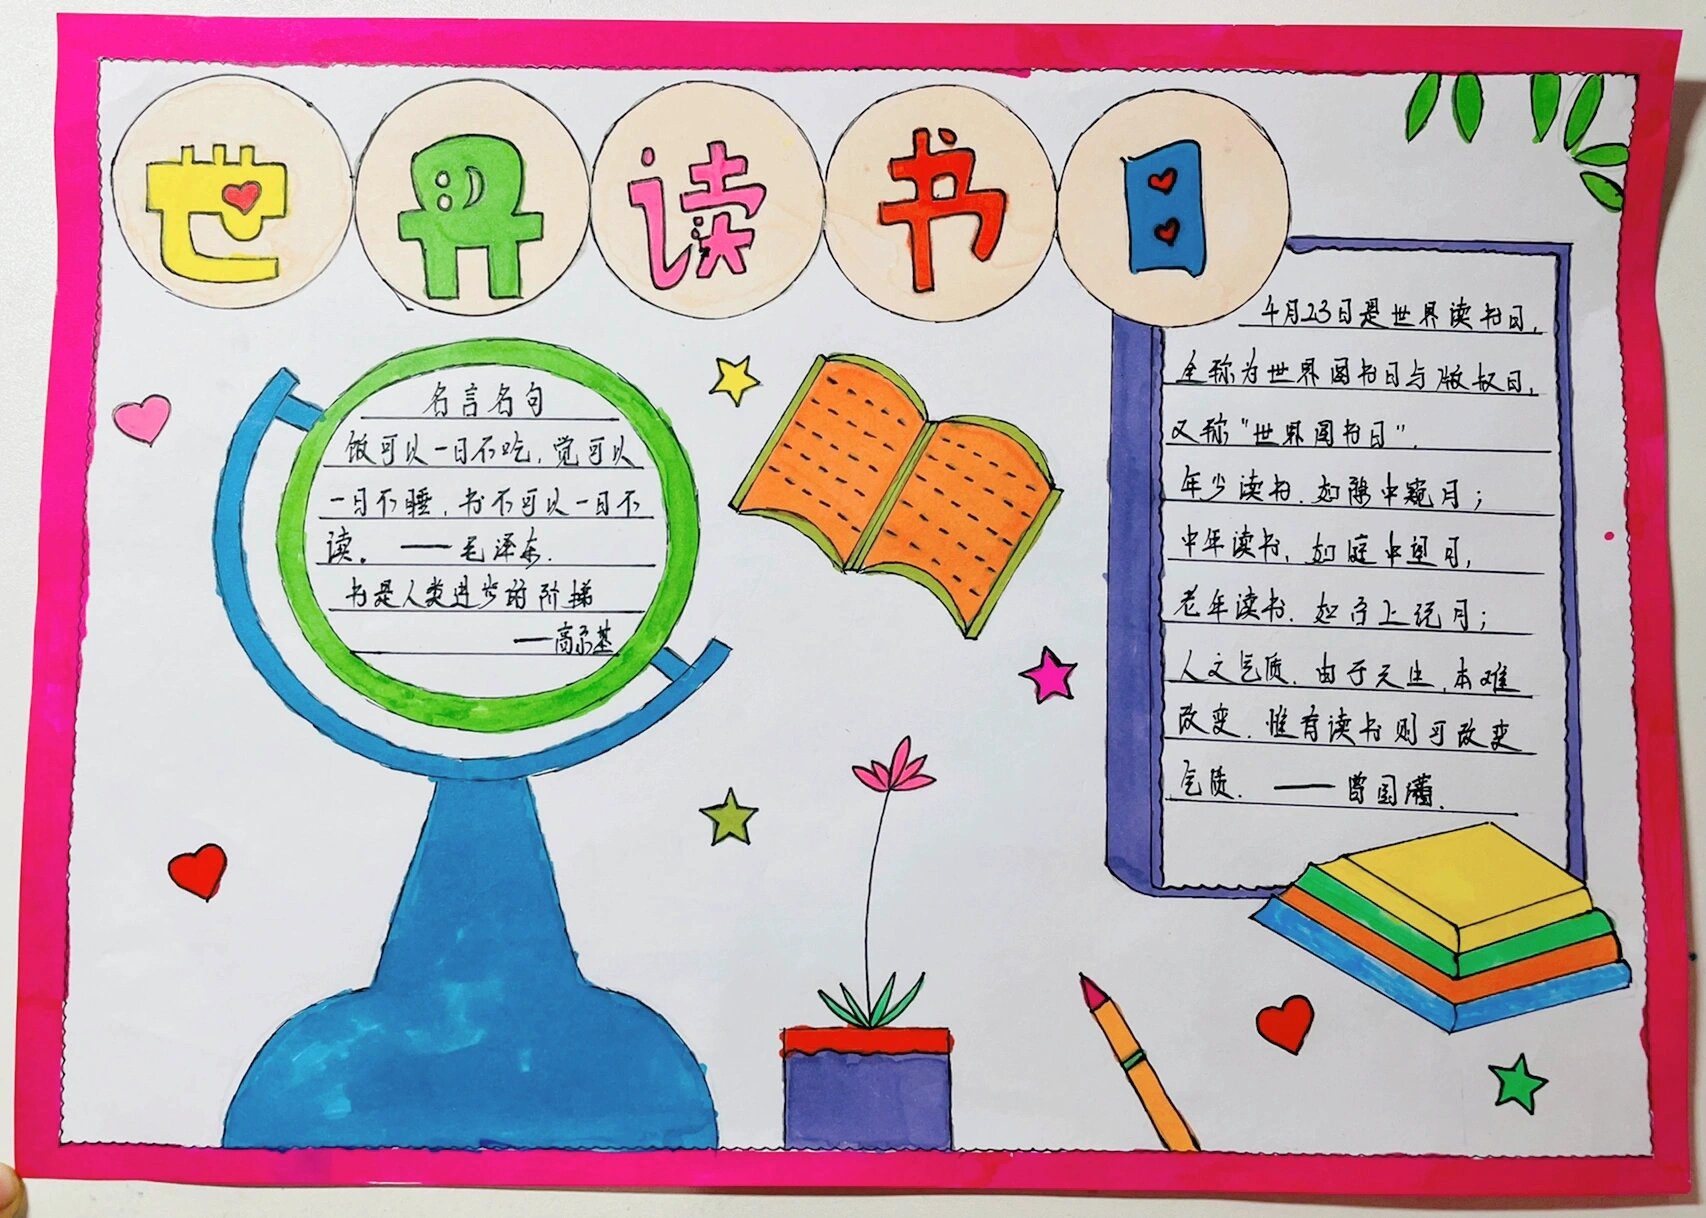 世界读书日
名言名句
饭可以一日不吃,觉可以
一日不睡,书不可以一日不
读。——毛泽东.
书是人类进步的阶梯
——高尔基
4月23日是世界读书日,
全称为世界图书日与版权日,
又称“世界图书日”.
年少读书.如隙中窥月;
中年读书,如庭中望月,
老年读书.如台上玩月;
人文气质.由于天生,本难
改变.惟有读书则可改变
气质.——曾国藩.